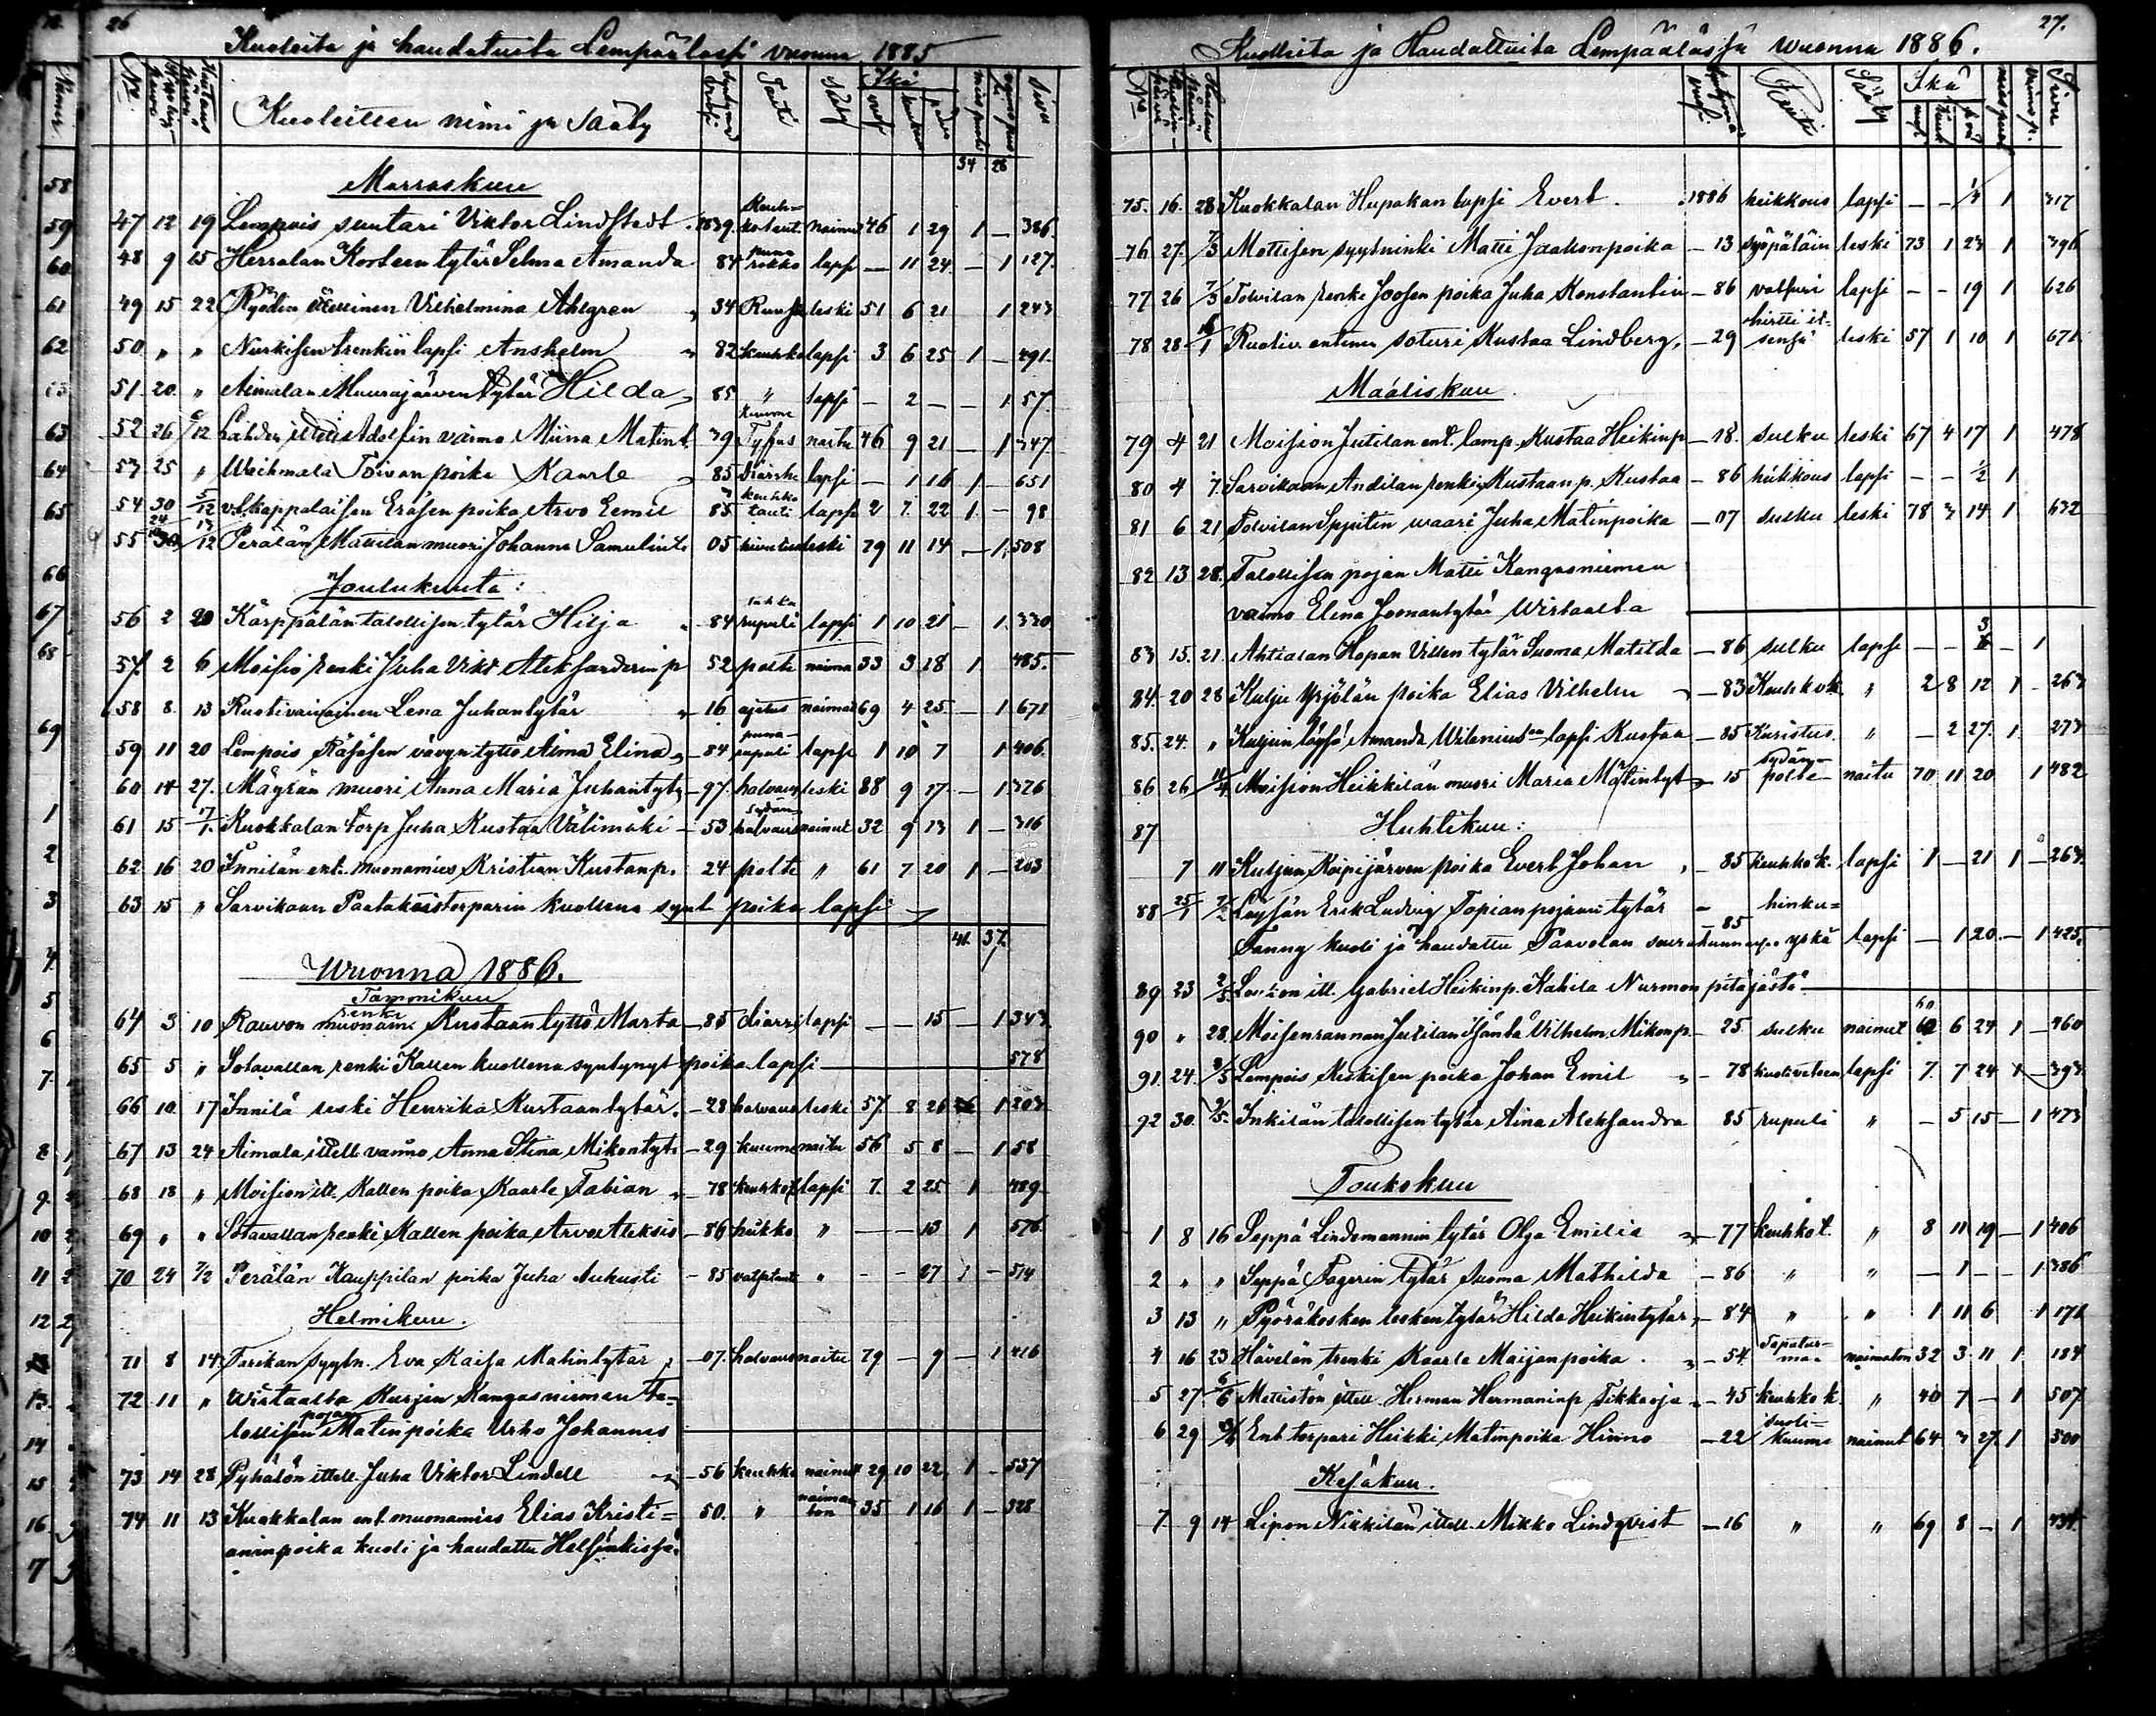 26
Kuoleita ja haudatuita Lempäälässi vuonna 1885
No Kuoleitten nimi ja sääty Tauti Sääty Ikä miespuoli Sivu
34 26
Marraskuu
47 12 19 Lempois suutari Viktor Lindstedt 1839 Keuhkotaut. naimu 46 1 29 1 — 386.
48 9 15 Herralan Korteen tytär Selma Amanda 84 punarokko lapse — 11 24 — 1 127.
49 15 22 Ryödin itellinen Vilhelmina Ahlgren „ 34 leski 51 6 21 1 243
50 „ „ Nurkisen trenkiin lapsi Anshelm „ 82 keuhko lapsi 3 6 25 1 — 491.
51 20 „ Aimalan Muurajärven tytär Hilda „ 85 „ lapsi — 2 — — 1 57.
52 26 6/12 Lahden ittell Adolfin vaimo Miina Matint. 39 kuume Tyfus naitu 46 9 21 — 1 347
53 25 „ Weihmala Toivan poika Kaarle „ 85 lapsi — 1 16 1 — 651
54 30 5/12 v.l. kappalaisen Eräsen poika Arvo Eemil 85 keuhkotauti lapse 2 7. 22 1. — 98
55 24 13/12 Perälän Mattilan muori Johanna Samulint. 05 leski 79 11 14 — 1. 508
Joulukuuta:
56 2 20 Kärppälän talollisen tytär Hilja „ 84 tuhkarupuli lapsi 1 10 21 — 1. 330
57. 2 6 Moisio renki Juha Vikt Aleksanderinp 52 polte naima 33 3 18 1. 485.
58 8. 13 Ruotivaivainen Lena Juhantytär „ 16 ajetus naimat 69 4 25 — 1. 671
59 11 20 Lempois Räsäsen vävyn tyttö Aima Elina „ 84 punarupuli lapse 1 10 7 1 406.
60 14 27. Mäyrän muori Anna Maria Juhantyt. — 97. halvaus leski 88 9 17 — 1 376
61 15 17/1. Kuokkalan torp Juha Kustaa Välimäki — 53 sydänhalvaus nainut 32 9 13 1 — 316
62 16 20 Innilän ent. muonamies Kristian Kustanp. 24 polte „ 61 7 20 1 — 203
63 15 „ Sarvikaun Paatakoistorparin kuollena synt poika lapsi
41. 37.
Wuonna 1886.
Tammikuu
64 3 10 Rauvon renki muonami Kustaan tyttö Marta — 85 diarre lapsi — — 15 — 1 343
65 5 „ Sotavallan renki Kallen kuollena syntynyt poika lapsi — 578
66 10 17 Innilä leski Henrika Kustaantytär. — 28 halvaus leski 57. 8 26 1 203
67 13 24 Aimala ittell vaimo Anna Stina Mikontyt. — 29 kuume naitu 56 5 8 — 1 58
68 18 „ Moision itt. Kallen poika Kaarle Fabian „ 78 keuhkot lapsi 7. 2 25. 1 489
69 „ „ Sotavallan renki Kallen poika Arvo Aleksis — 86 hiikko „ — — 13 1 578.
70 24 7/2 Perälän Kauppilan poika Juha Aukusti — 85 vatsataut „ — — 27 1 — 514
Helmikuu.
71 8 14 Tarikan syytn. Eva Kaisa Matintytär — 07. halvaus naitu 79 — 9 — 1 416
72 11 „ Wirtaalta Kurjen Kangasniemen ta-
lollisen pojan Matin poika Urho Johannes
73 14 28 Pyhälön ittell. Juha Viktor Lindell — 56 keuhko nainut 29 10 22 1 — 537
74 11 13 Kuokkalan ent. muonamies Elias Kristi- 50. „ naimaton 35 1 16 1 — 328
aninpoika kuoli ja haudattu Helsinkissä.
27.
Kuolleita ja Haudattuita Lempäälässä Wuonna 1886.
No Sääty Ikä miespuol vaimop. Sivu
75. 16. 28 Kuokkalan Hupakan lapsi Evert. 1886 heikkous lapsi — — 1 317
76 27. 7/3 Mottisen syytninki Matti Jaakonpoika — 13 syöpätäin leski 73 1 23 1 396
77 26 7/3 Tolvilan renki Joosen poika Juha Konstantin — 86 lapsi — — 19 1 626
78 28 Ruotiv. entinen soturi Kustaa Lindberg, — 29 hirtti itsensä leski 57 1 10 1 671
Maaliskuu
79 4 21 Moision Jutilan ent. lamp. Kustaa Heikinp — 18. sulku leski 67 4 17 1 478
80 4 7. Sarvikaun Andilan renki Kustaan p. Kustaa — 86 heikkous lapsi — — 1/2 1
81 6 21 Tolvilan Spjutin vaari Juha Matinpoika — 07 sulku leski 78 3 14 1 632
82 13 28. Talollisen pojan Matti Kangasniemen
vaimo Elina Joonantytär Wirtaalta
83 15. 21. Ahtialan Hopan Villen tytär Suoma Matilda — 86 sulku lapse — — 3 — 1
84. 20 28 Kulju Yrjölän poika Elias Vilhelm „ — 83 Keuhkok. „ 2 8 12 1 — 263
85. 24. „ Kuljun löysä Amanda Wileniusen lapsi Kustaa — 85 Kuristus. „ — 2 27. 1. 273
86 26 11/4 Moision Heikkilän muori Maria Matintyt „ 15 sydänpolte naitu 70 11 20 1 482
87 Huhtikuu:
7 11 Kuljun Koipijärven poika Evert Johan „ — 85 keuhkok. lapsi 1 — 21 1 — 263.
88 25/1 7/2 Löysän Erik Ludvig Topian pojan tytär — 85 hinku-
Fanny kuoli ja haudattu Paavolan seurakunnassa yskä lapsi — 1 20 — 1 425.
89 23 2/5. itt. Gabriel Heikinp. Kahila Nurmon pitäjästä
90 „ 28. Moisenrannan Jutilan isäntä Vilhelm Mikonp. — 25 sulku nainut 60 6 24 1 — 460
91. 24. 3/5 Lempois Keskisen poika Johan Emil „ — 78 lapsi 7. 7 24 1 — 393.
92 30. 9/5. Inkilän talollisen tytär Aina Aleksandra 85 rupuli „ — 5 15 — 1 473
Toukokuu
1 8 16 Seppä Lindemannin tytär Olga Emilia „ — 77 keuhkot. „ 8 11 19 — 1 406
2 „ „ Seppä Fagerin tytär Suoma Mathilda — 86 „ „ — 1 — — 1 386
3 13 „ Pyöräkosken lesken tytär Hilda Heikintytär — 84 „ „ 1 11 6 1 171
4 16 23 Hävelän trenki Kaarle Maijanpoika. „ — 54. Tapaturma naimaton 32 3 11 1 184
5 27 6/6 Mattistön ittell. Herman Hermaninp Tikkaoja — 45 keuhkok. „ 40 7 — 1 507.
6 29 Ent torpari Heikki Matinpoika Hinno — 22 suolikuume nainut 64 3 27. 1 300
Kesäkuu.
7. 9 14 Lipon Nikkilän ittell. Mikko Lindqvist — 16 „ „ 69 8 — 1 434.